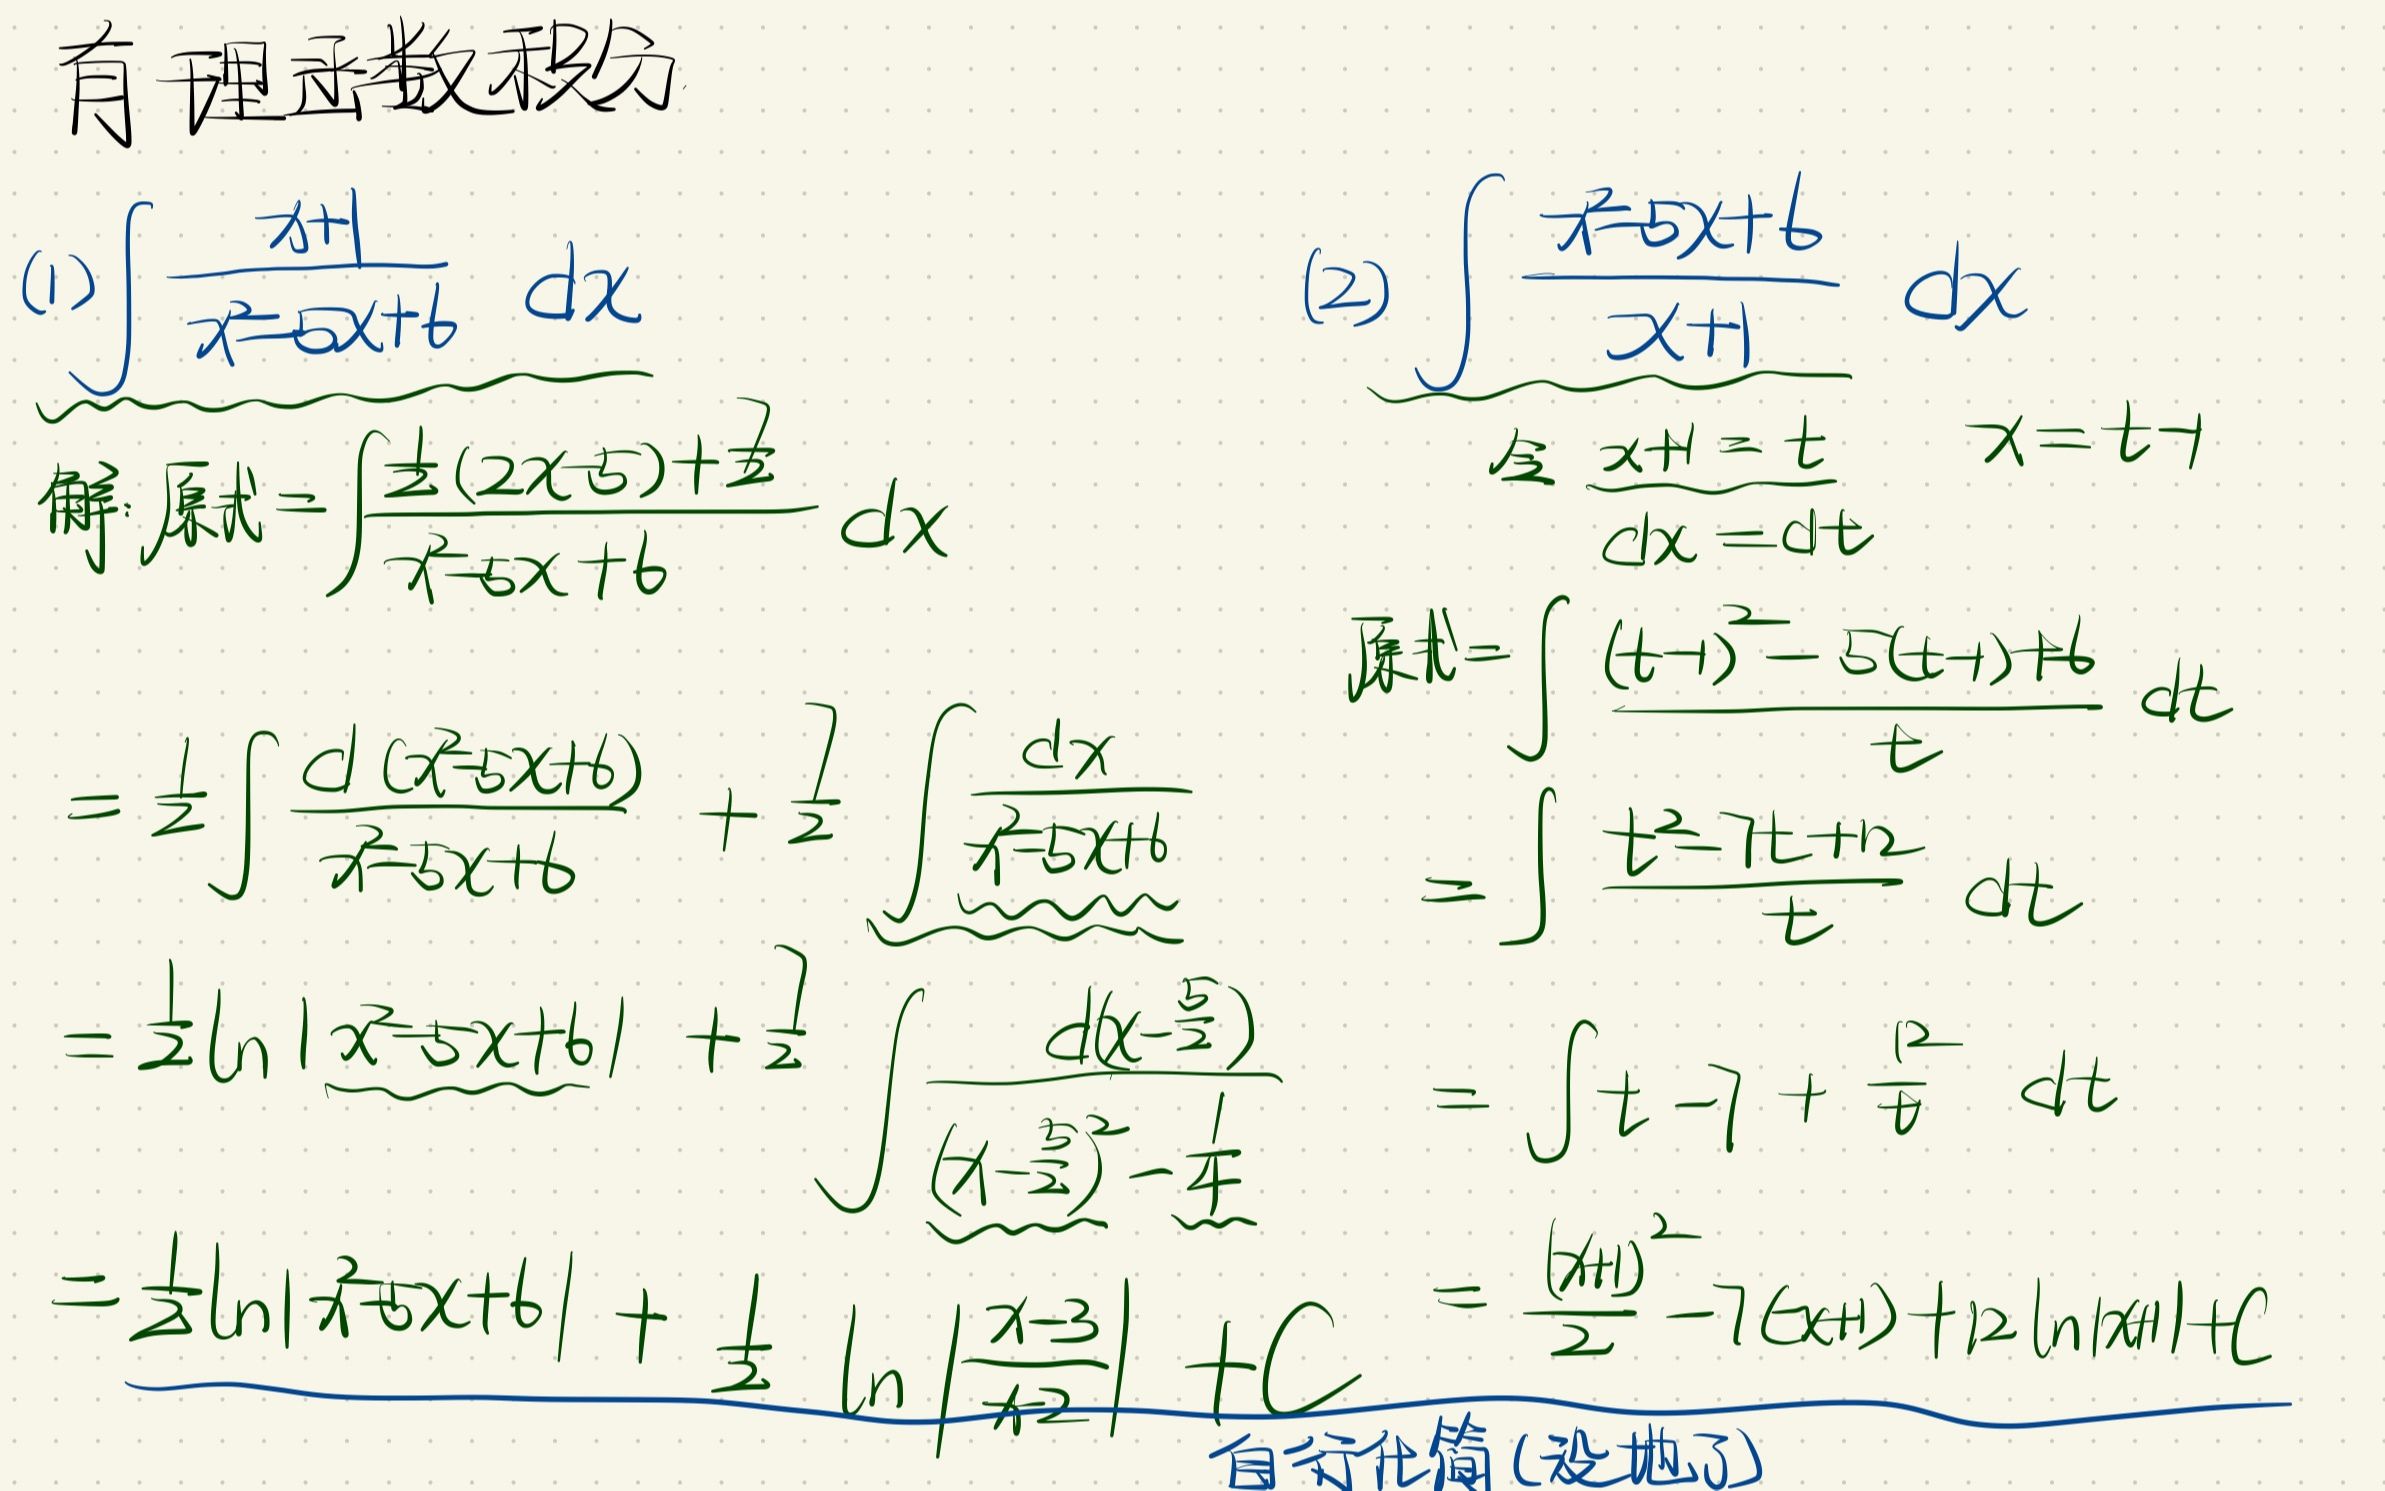 有理函数积分
(1) ∫ (x+1)/(x²-5x+6) dx
解:原式 = ∫ (½(2x-5)+7/2)/(x²-5x+6) dx
= ½ ∫ d(x²-5x+6)/(x²-5x+6) + 7/2 ∫ dx/(x²-5x+6)
= ½ ln|x²-5x+6| + 7/2 ∫ d(x-5/2)/((x-5/2)²-1/4)
= ½ ln|x²-5x+6| + ½ ln|(x-3)/(x-2)| + C
(2) ∫ (x²-5x+6)/(x+1) dx
令 x+1=t x=t-1
dx=dt
原式= ∫ ((t-1)²-5(t-1)+6)/t dt
= ∫ (t²-7t+12)/t dt
= ∫ t-7+12/t dt
= (x+1)²/2 -7(x+1)+12 ln|x+1|+C
自行化简(没地了)